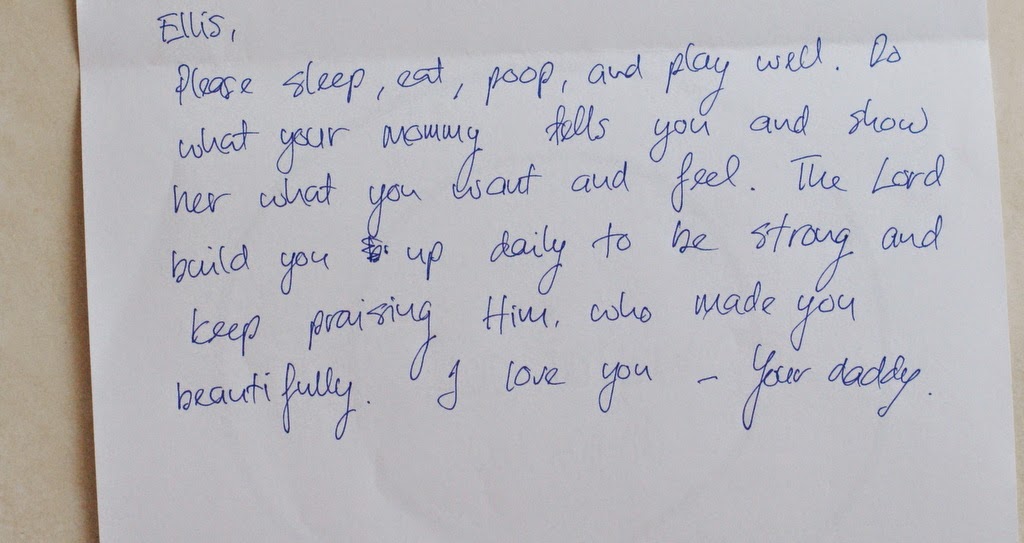 Ellis,
Please sleep, eat, poop, and play well. Do
what your mommy tells you and show
her what you want and feel. The Lord
build you up daily to be strong and
keep praising Him, who made you
beautifully. I love you - Your daddy.